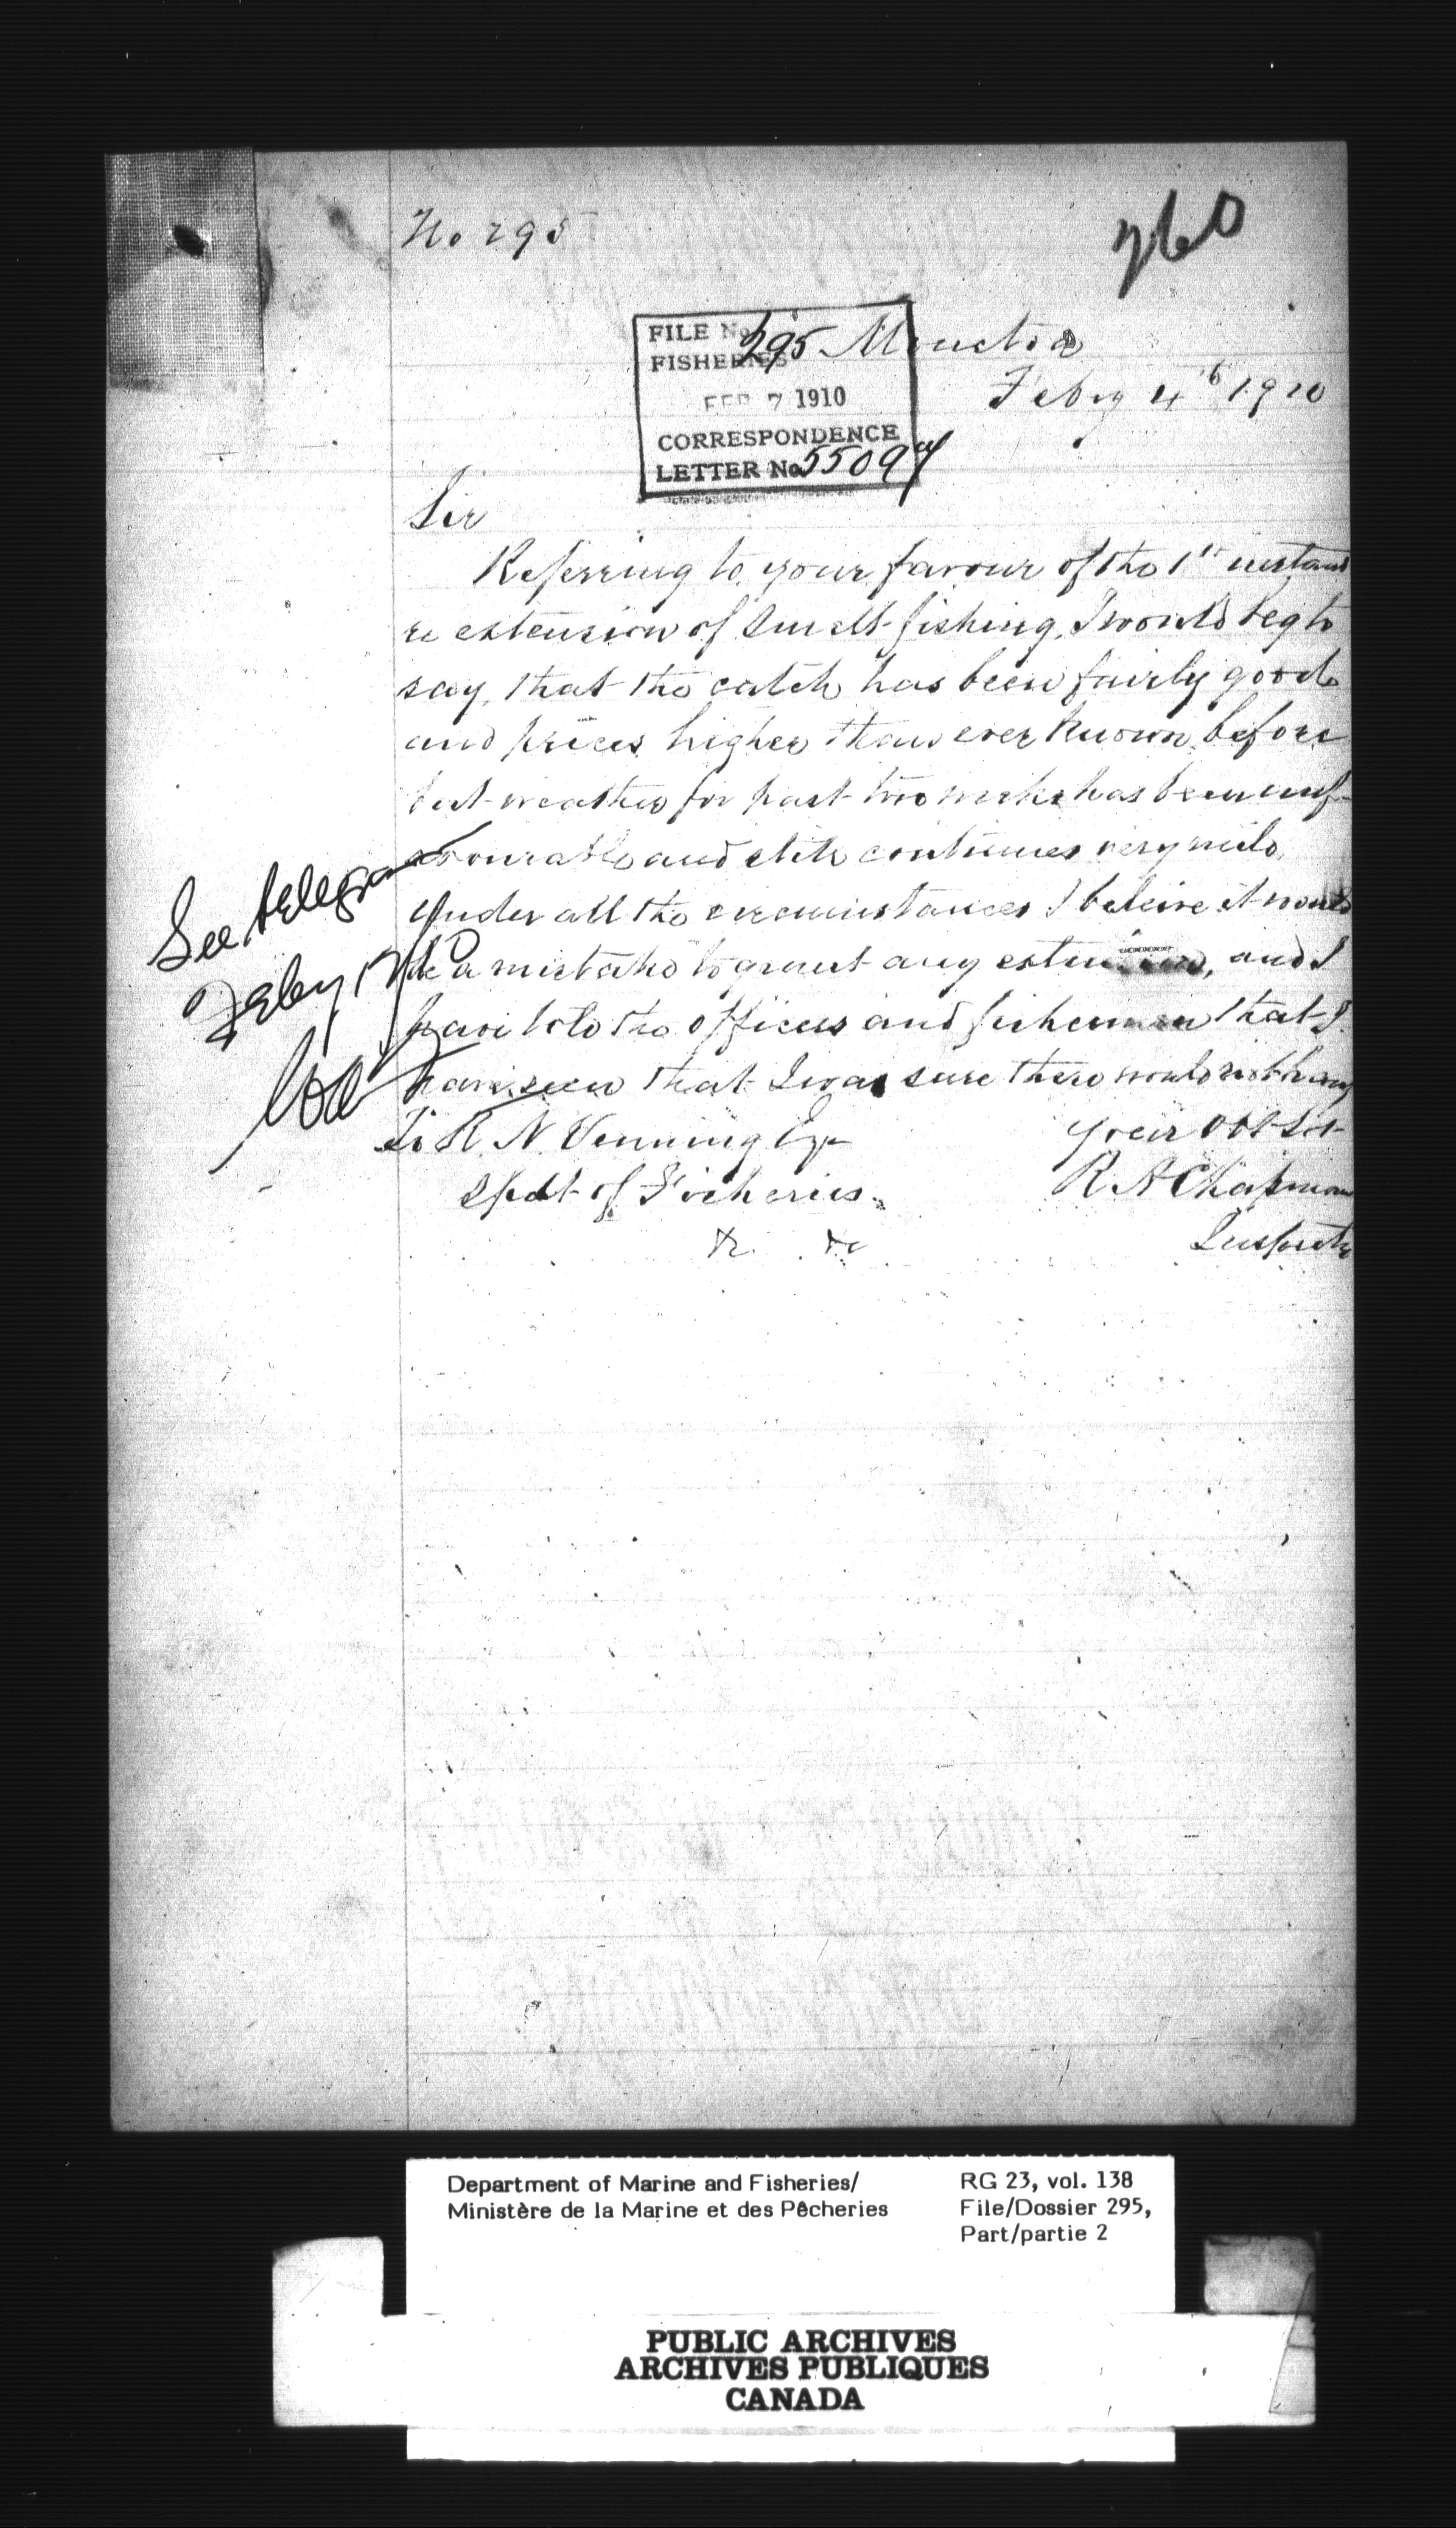 No 295
260
FILE No 295
FISHERIES
FEB 7 1910
CORRESPONDENCE
LETTER No 55094
Moncton
Feby 4th 1910
Sir
Referring to your favour of the 1st instant
re extension of Smelt fishing, I would beg to
say, that the catch has been fairly good
and prices higher than ever known before
but weather for past two weeks has been unf-
avourable and still continues very mild.
Under all the circumstances I beleive it would
be a mistake to grant any extension, and I
have told the officers and fishermen that I
have seen that I was sure there would not be any
See telegram
Feby 17
To R. N. Venning Esq
Supdt of Fisheries
&c &c
your obt Svt
R A Chapman
Inspector
Department of Marine and Fisheries/
Ministère de la Marine et des Pêcheries
RG 23, vol. 138
File/Dossier 295,
Part/partie 2
PUBLIC ARCHIVES
ARCHIVES PUBLIQUES
CANADA